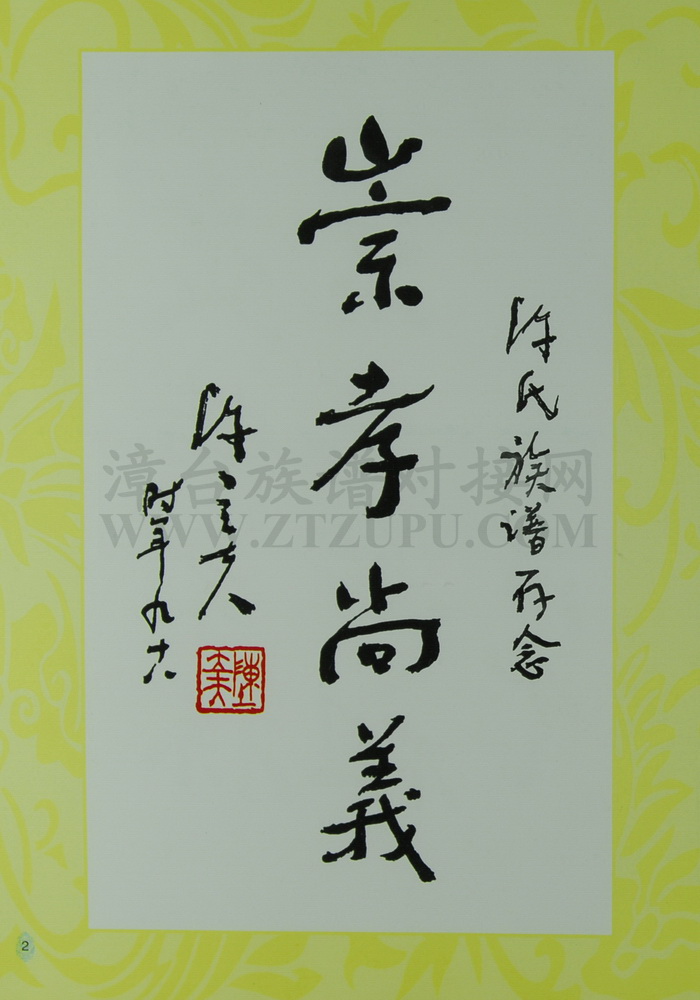 陈氏族谱存念
崇孝尚義
陈立夫
时年九十六
漳台族谱对接网
WWW.ZTZUPU.COM
2